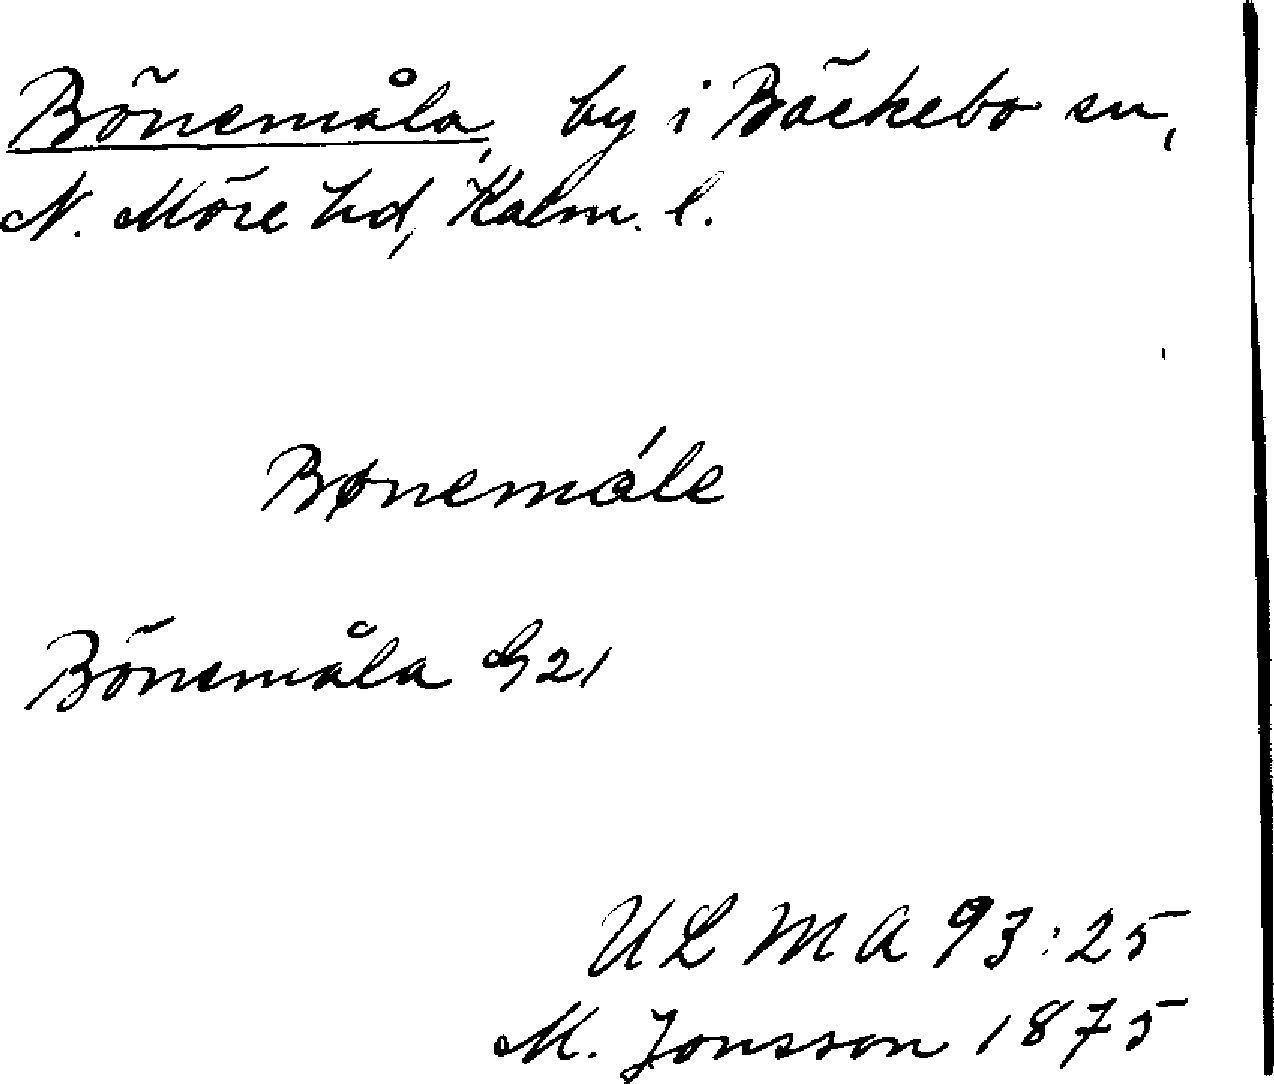 Bönemåla, by i Bäckebo sn,
N. Möre hd, Kalm. l.
Bønemåle
Bönemåla G21
ULMA 93:25
M. Jonsson 1875